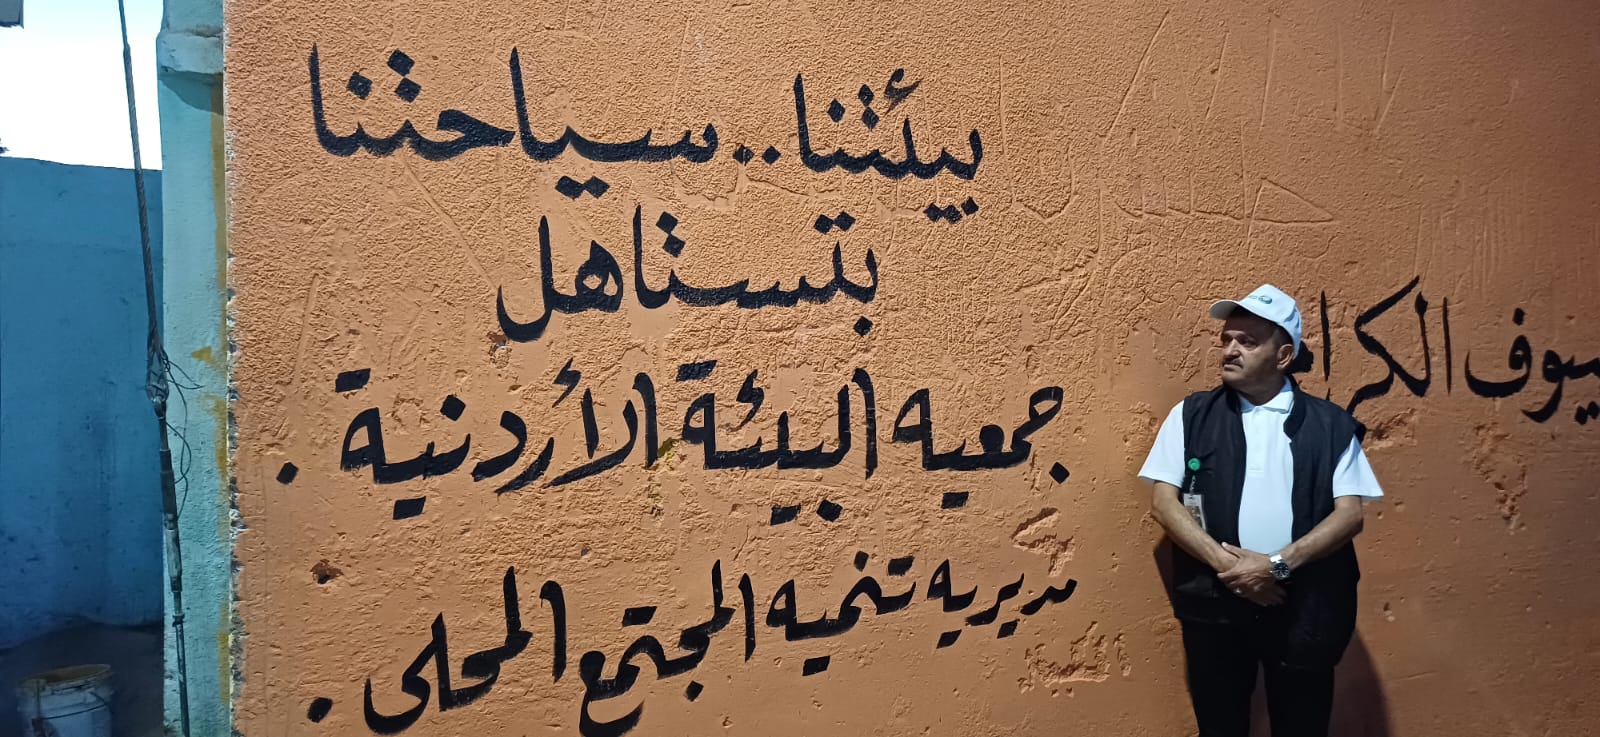 بيئتنا..سياحتنا
بتستاهل
جمعيه البيئة الأردنية.
مديريه تنميه المجتمع المحلى.
الكرا